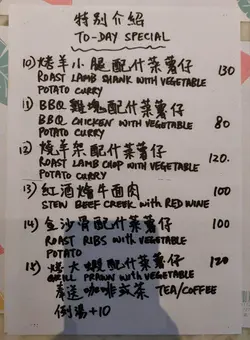 特别介紹
TO-DAY SPECIAL
10) 烤羊小腿配什菜薯仔 130
ROAST LAMB SHANK WITH VEGETABLE
POTATO CURRY
11) BBQ 雞塊配什菜薯仔
BBQ CHICKEN WITH VEGETABLE 80
POTATO CURRY
12) 燒羊架配什菜薯仔 120.
ROAST LAMB CHOP WITH VEGETABLE
POTATO CURRY
13) 紅酒燴牛面肉 100
STEN BEEF CREEK WITH RED WINE
14) 金沙骨配什菜薯仔 100
ROAST RIBS WITH VEGETABLE
POTATO
15) 烤大蝦配什菜薯仔 120
GRILL PRAWN WITH VEGETABLE
奉送咖啡或茶 TEA/COFFEE
例湯+10